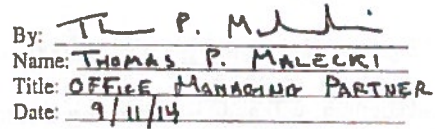 By: Th P. M
Name: THOMAS P. MALECKI
Title: OFFICE MANAGING PARTNER
Date: 9/11/14